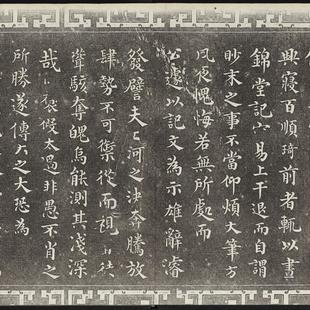 典寢百順琦前者輒以晝
錦堂記六易上干退而自謂
眇末之事不當仰煩大筆方
夙夜愧悔若無所處而
公遽以記文為示雄辭濬
發譬夫河之決奔騰放
肆勢不可禦從而視徒
聳駭奪魄烏能測其淺深
哉但褒假太過非愚不肖之
所勝遂傳之大恐為